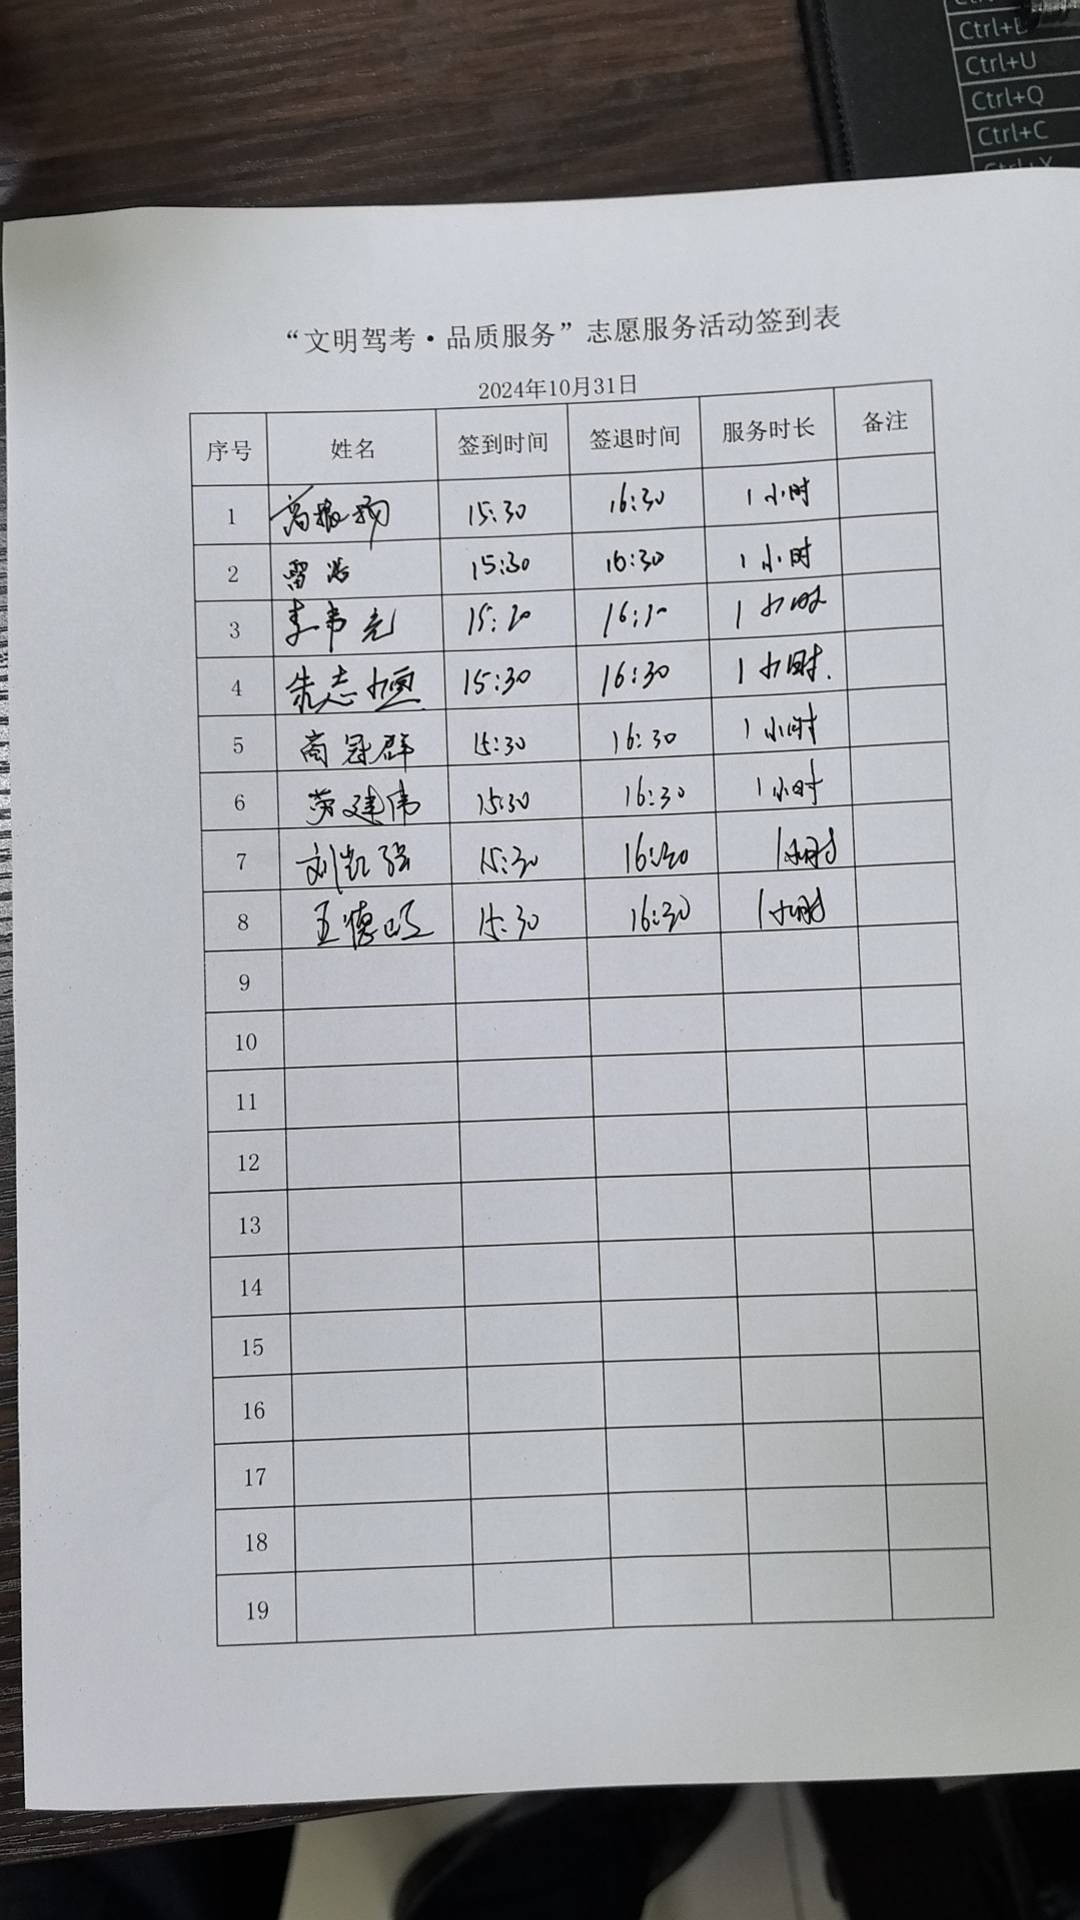 Ctrl+U
Ctrl+Q
Ctrl+C
Ctrl+X
“文明驾考·品质服务”志愿服务活动签到表
2024年10月31日
序号 姓名 签到时间 签退时间 服务时长 备注
1 高振扬 15:30 16:30 1小时
2 雷浩 15:30 16:30 1小时
3 李韦克 15:30 16:30 1小时
4 朱志恒 15:30 16:30 1小时.
5 商冠群 15:30 16:30 1小时
6 劳建伟 15:30 16:30 1小时
7 刘凯强 15:30 16:30 1小时
8 王德 15:30 16:30 1小时
9
10
11
12
13
14
15
16
17
18
19